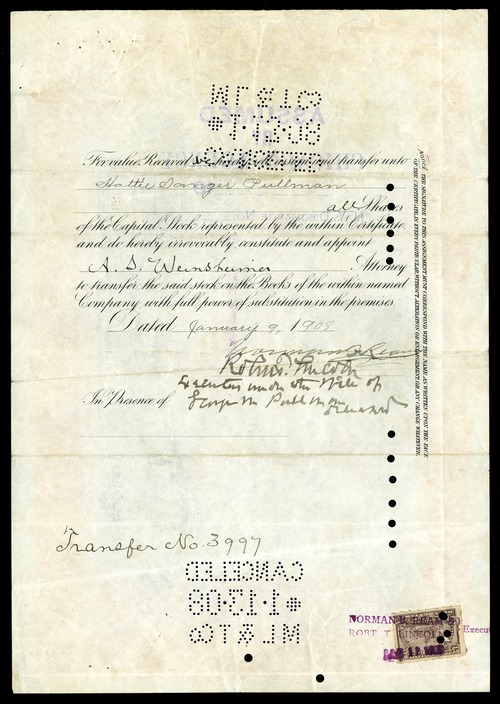 ML & T Co
1•13•08
CANCELLED
For value Received hereby sell, assign and transfer unto
Hattie Sanger Pullman
all Shares
of the Capital Stock represented by the within Certificate
and do hereby irrevocably constitute and appoint
A. S. Weinsheimer Attorney
to transfer the said stock on the Books of the within named
Company with full power of substitution in the premises
Dated January 9, 1908
Norman B Ream
Robt T. Lincoln
Executors under the Will of
In Presence of George M Pullman
deceased
NOTICE THE SIGNATURE TO THIS ASSIGNMENT MUST CORRESPOND WITH THE NAME AS WRITTEN UPON THE FACE
OF THE CERTIFICATE IN EVERY PARTICULAR WITHOUT ALTERATION OR ENLARGEMENT OR ANY CHANGE WHATEVER.
Transfer No. 3997
CANCELLED
1•13•08
ML & T Co
NORMAN B. REAM
ROBT T. LINCOLN Execut